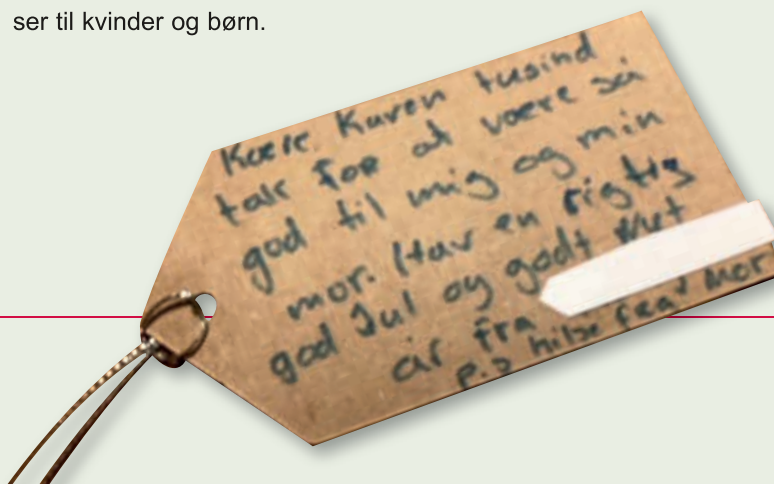 ser til kvinder og børn.
Kære Karen tusind
tak for at være så
god til mig og min
mor. Hav en rigtig
god Jul og godt nyt
år fra
P.S hilse fra mor